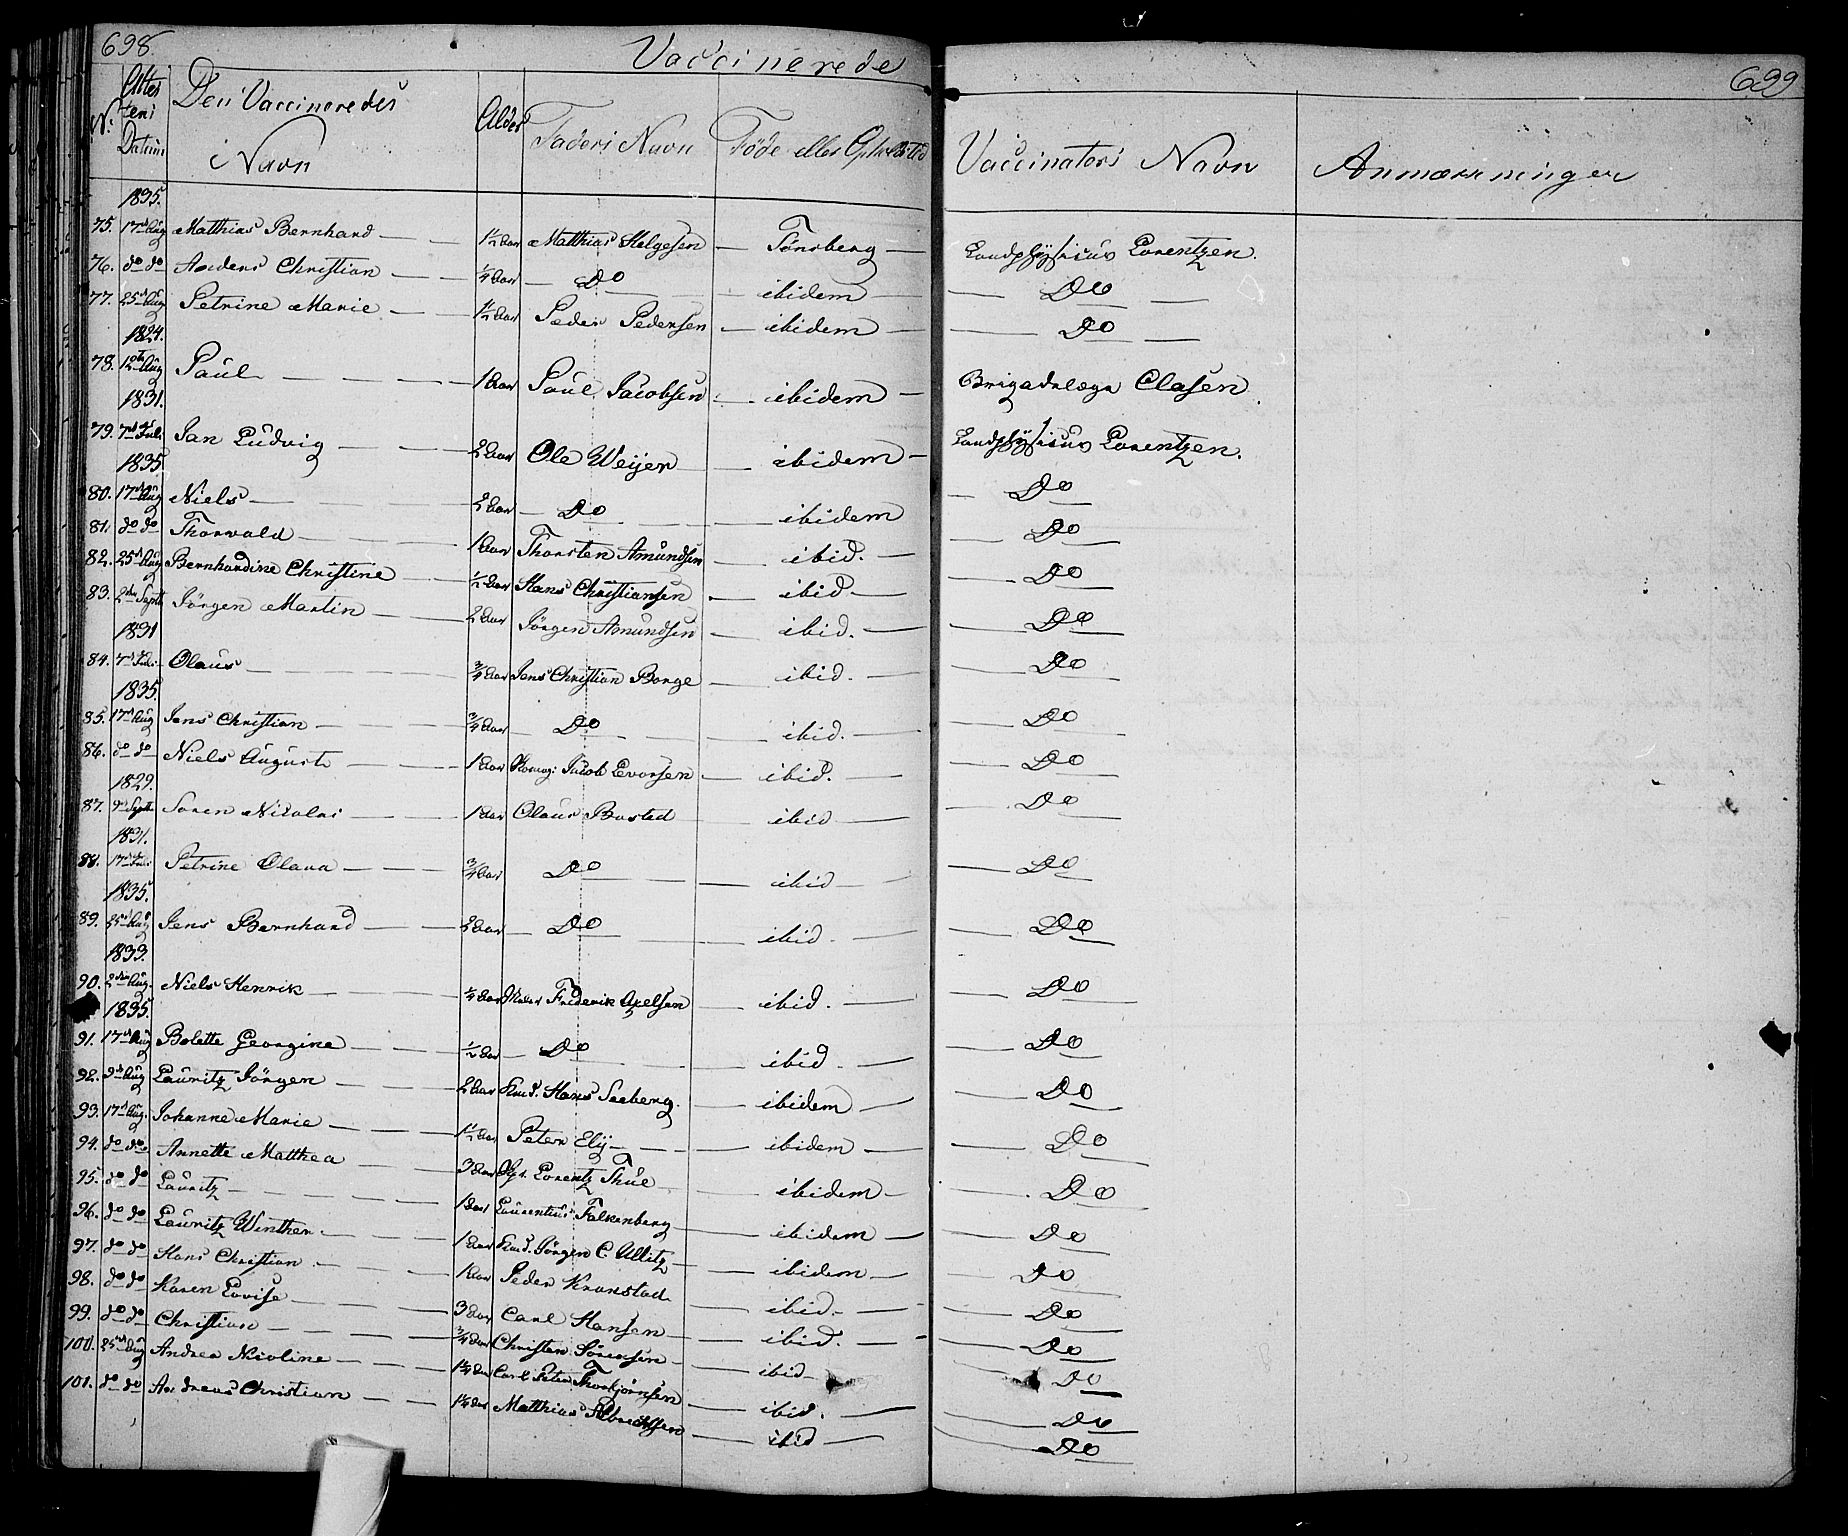 698
Vaccinerede
699
No Attestens Datum Den Vaccineredes Navn Alder Faders Navn Føde eller Opholdsted Vaccinators Navn Anmærkninger
1835.
75. 17de Aug Matthias Bernhard — 1½ Aar Matthias Helgesen — Tønsberg — Landphysicus Lorentzen.
76. do do Anders Christian — ¼ Aar Do — ibidem — Do
77. 25de Aug Petrine Marie — 1½ Aar Peder Pedersen — ibidem — Do
1824.
78. 12te Aug Paul — 1 Aar Paul Jacobsen — ibidem — Brigadelæge Clasen.
1831.
79. 7de Juli Jan Ludvig — 2 Aar Ole Weijer — ibidem — Landphysicus Lorentzen.
1835
80. 17de Aug Niels — 2 Aar — Do — ibidem — Do
81. do do Thorvald — 1 Aar Thorsten Amundsen — ibid. — Do
82. 25de Aug Bernhardine Christine — ½ Aar Hans Christiansen — ibid. — Do
83. 2den Septb Jørgen Martin — 2 Aar Jørgen Amundsen — ibid. — Do
1831
84. 7de Juli Olaus — ¾ Aar Jens Christian Borge — ibid. — Do
1835.
85. 17de Aug Jens Christian — ¾ Aar Do — ibid. — Do
86. do do Niels August — 1 Aar Jacob Evorsen — ibid. — Do
1829.
87. 9de Septb Soren Nicolai — 1 Aar Olaus Busted — ibid — Do
1831.
88. 17de Juli Petrine Olava — ¾ Aar Do — ibid — Do
1835.
89. 25de Aug Jens Bernhard — 2 Aar — Do — ibid. — Do
1833.
90. 2den Aug. Niels Henrik — ¼ Aar Frederik Axelsen — ibid. — Do
1835.
91. 17de Aug Bolette Georgine — ½ Aar — Do — ibid. — Do
92. 9de Aug Lauritz Jörgen — 2 Aar Kmd. Hans Seeberg. — ibidem — Do
93. 17de Aug. Johanne Marie — 1½ Aar Peter Elij — ibidem — Do
94. do do Annette Matthea — 3 Aar Lorentz Thue — ibidem — Do
95. do do Lauritz — 1 Aar Laurentius Falkenberg — ibidem — Do
96. do do Lauritz Winther — 1 Aar Kmd. Jörgen C. Ullitz — ibidem — Do
97. do do Hans Christian — 1 Aar Peder Kronstad — ibid. — Do
98. do do Karen Lovise — 3 Aar Carl Hansen — ibid. — Do
99. do do Christian — ¾ Aar Christen Sörensen — ibid — Do
100. 25de Aug Andrea Nicoline — 1¼ Aar Carl Peter Thorbjörnsen — ibid. — Do
101. do do Andreas Christian — 1¼ Aar Matthias Albrechtsen — ibid — Do